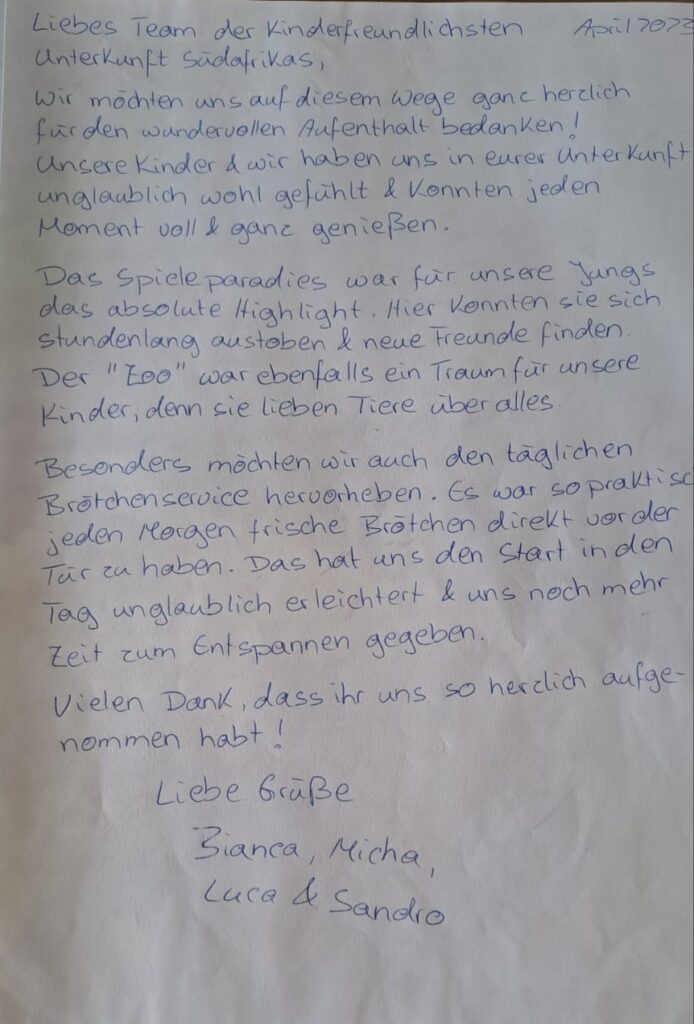 Liebes Team der Kinderfreundlichsten April 2023
Unterkunft Südafrikas,
Wir möchten uns auf diesem Wege ganz herzlich
für den wundervollen Aufenthalt bedanken!
Unsere Kinder & wir haben uns in eurer Unterkunft
unglaublich wohl gefühlt & konnten jeden
Moment voll & ganz genießen.
Das Spieleparadies war für unsere Jungs
das absolute Highlight. Hier konnten sie sich
stundenlang austoben & neue Freunde finden.
Der "Zoo" war ebenfalls ein Traum für unsere
Kinder, denn sie lieben Tiere über alles.
Besonders möchten wir auch den täglichen
Brötchenservice hervorheben. Es war so praktisc
jeden Morgen frische Brötchen direkt vor der
Tür zu haben. Das hat uns den Start in den
Tag unglaublich erleichtert & uns noch mehr
Zeit zum Entspannen gegeben.
Vielen Dank, dass ihr uns so herzlich aufge-
nommen habt!
Liebe Grüße
Bianca, Micha,
Luca & Sandro